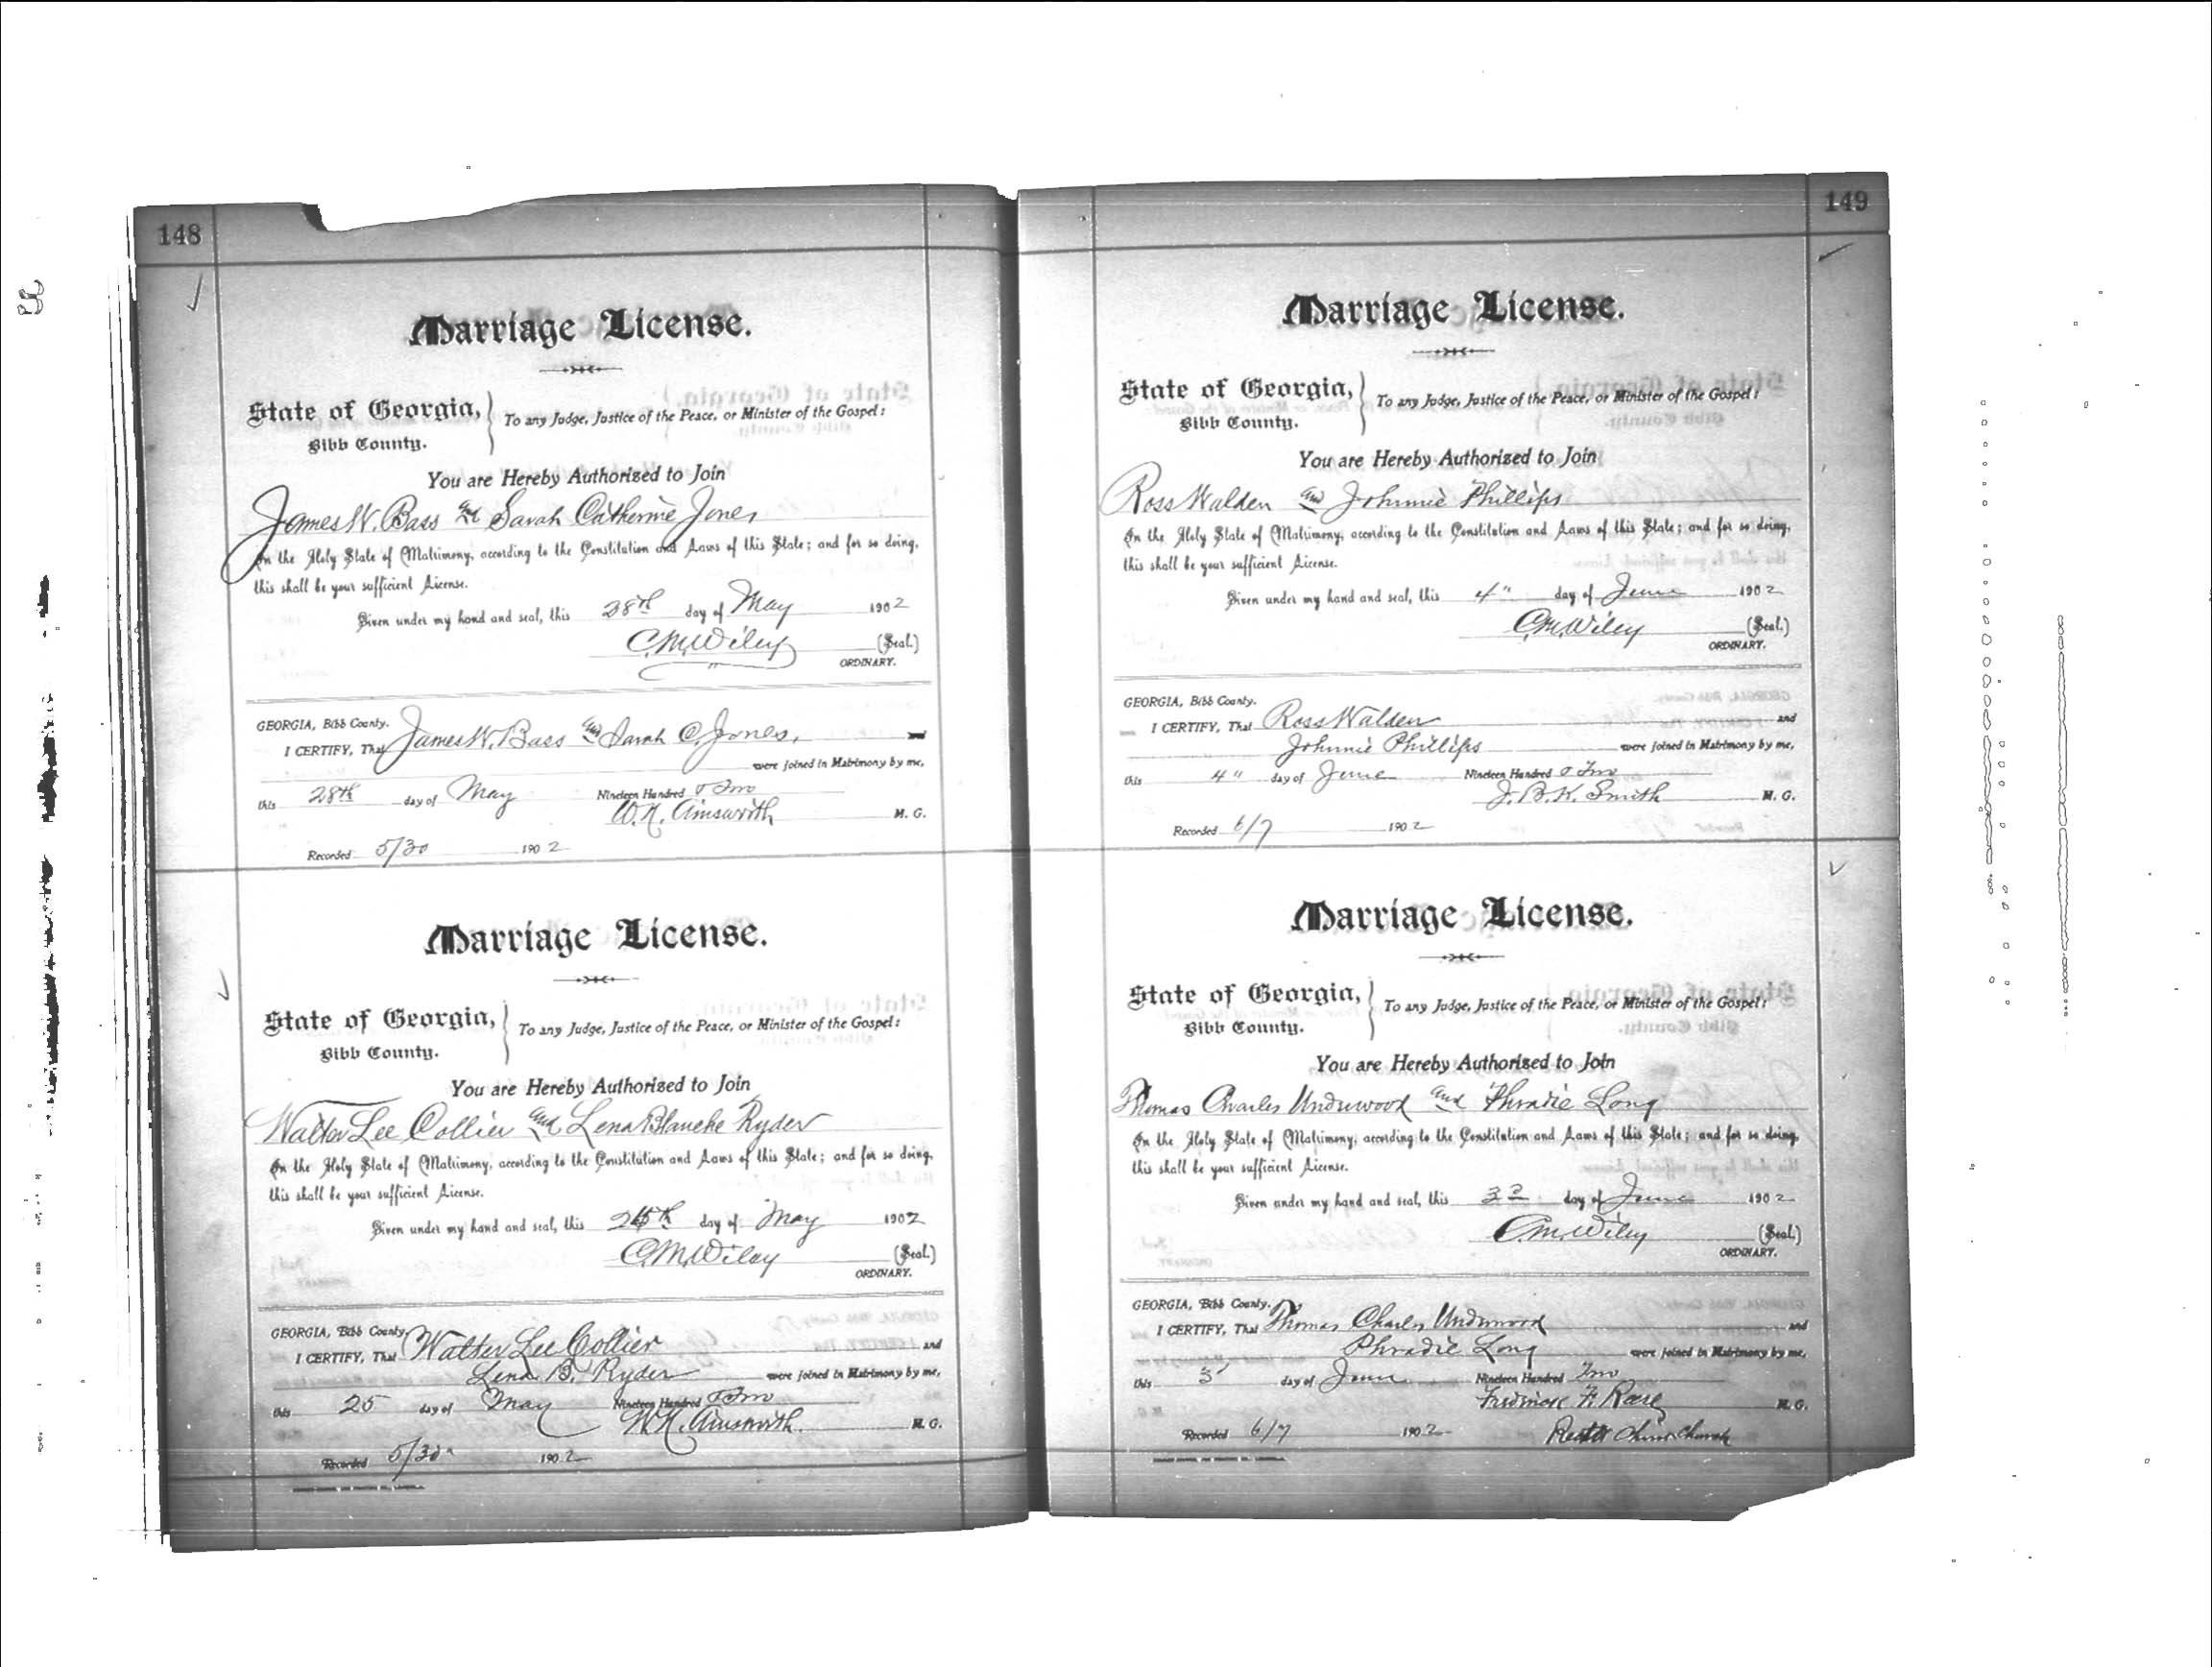 148
Marriage License.
State of Georgia,
Bibb County.
To any Judge, Justice of the Peace, or Minister of the Gospel:
You are Hereby Authorized to Join
James W. Bass and Sarah Catherine Jones
In the Holy State of Matrimony, according to the Constitution and Laws of this State; and for so doing,
this shall be your sufficient License.
Given under my hand and seal, this 28th day of May 1902
C. M. Wiley (Seal.)
ORDINARY.
GEORGIA, Bibb County.
I CERTIFY, That James W. Bass and Sarah C. Jones, and
were joined in Matrimony by me,
this 28th day of May Nineteen Hundred & Two
W. N. Ainsworth M. G.
Recorded 5/30 1902
Marriage License.
State of Georgia,
Bibb County.
To any Judge, Justice of the Peace, or Minister of the Gospel:
You are Hereby Authorized to Join
Walter Lee Collier and Lena Blanche Ryder
In the Holy State of Matrimony, according to the Constitution and Laws of this State; and for so doing,
this shall be your sufficient License.
Given under my hand and seal, this day of May 1902
C. M. Wiley (Seal.)
ORDINARY.
GEORGIA, Bibb County.
I CERTIFY, That Walter Lee Collier and
Lena B. Ryder were joined in Matrimony by me,
this 25 day of May Nineteen Hundred & Two
W. N. Ainsworth. M. G.
Recorded 5/30 1902
149
Marriage License.
State of Georgia,
Bibb County.
To any Judge, Justice of the Peace, or Minister of the Gospel:
You are Hereby Authorized to Join
Ross Walden and Johnnie Phillips
In the Holy State of Matrimony, according to the Constitution and Laws of this State; and for so doing,
this shall be your sufficient License.
Given under my hand and seal, this 4" day of June 1902
C. M. Wiley (Seal.)
ORDINARY.
GEORGIA, Bibb County.
I CERTIFY, That Ross Walden and
Johnnie Phillips were joined in Matrimony by me,
this 4" day of June Nineteen Hundred & Two
J. B. K. Smith M. G.
Recorded 6/7 1902
Marriage License.
State of Georgia,
Bibb County.
To any Judge, Justice of the Peace, or Minister of the Gospel:
You are Hereby Authorized to Join
Thomas Charles Underwood and Phradie Long
In the Holy State of Matrimony, according to the Constitution and Laws of this State; and for so doing,
this shall be your sufficient License.
Given under my hand and seal, this 3 day of June 1902
C. M. Wiley (Seal.)
ORDINARY.
GEORGIA, Bibb County.
I CERTIFY, That Thomas Charles Underwood and
Phradie Long were joined in Matrimony by me,
this 3 day of June Nineteen Hundred Two
F. Reese M. G.
Recorded 6/7 1902 Church